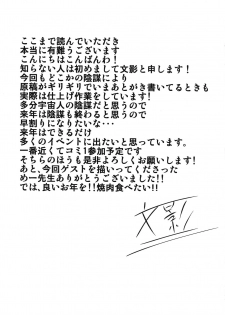 ここまで読んでいただき
本当に有難うございます
こんにちはこんばんわ！
知らない人は初めまして文影と申します！
今回もどこかの陰謀により
原稿がギリギリでいまあとがき書いてるときも
実際は仕上げ作業をしています！
多分宇宙人の陰謀だと思うので
来年は陰謀も終わると思うので
早割りになりたいな・・・
来年はできるだけ
多くのイベントに出たいと思っています。
一番近くてコミ1参加予定です
そちらのほうも是非よろしくお願いします！
あと、今回ゲストを描いってくださった
めー先生ありがとうございました！！
では、良いお年を！！焼肉食べたい！！
文影